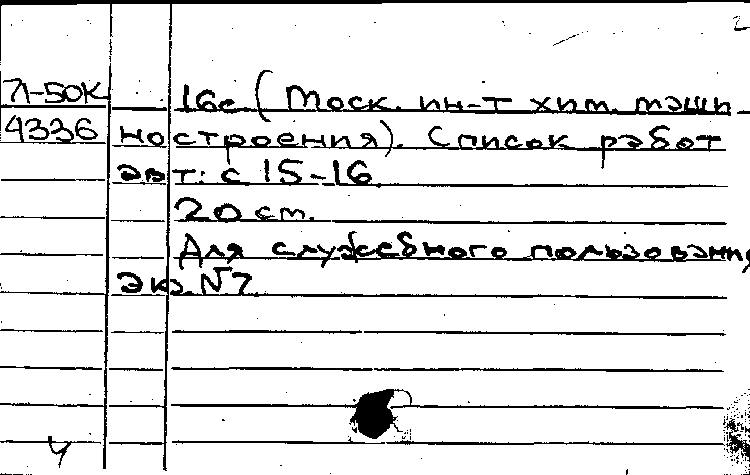 2
71-50К 16с. (Моск. ин-т хим. маши
4336 ностроения). Список работ
авт: с 15-16.
20 см.
Для служебного пользования
экз. №7
4